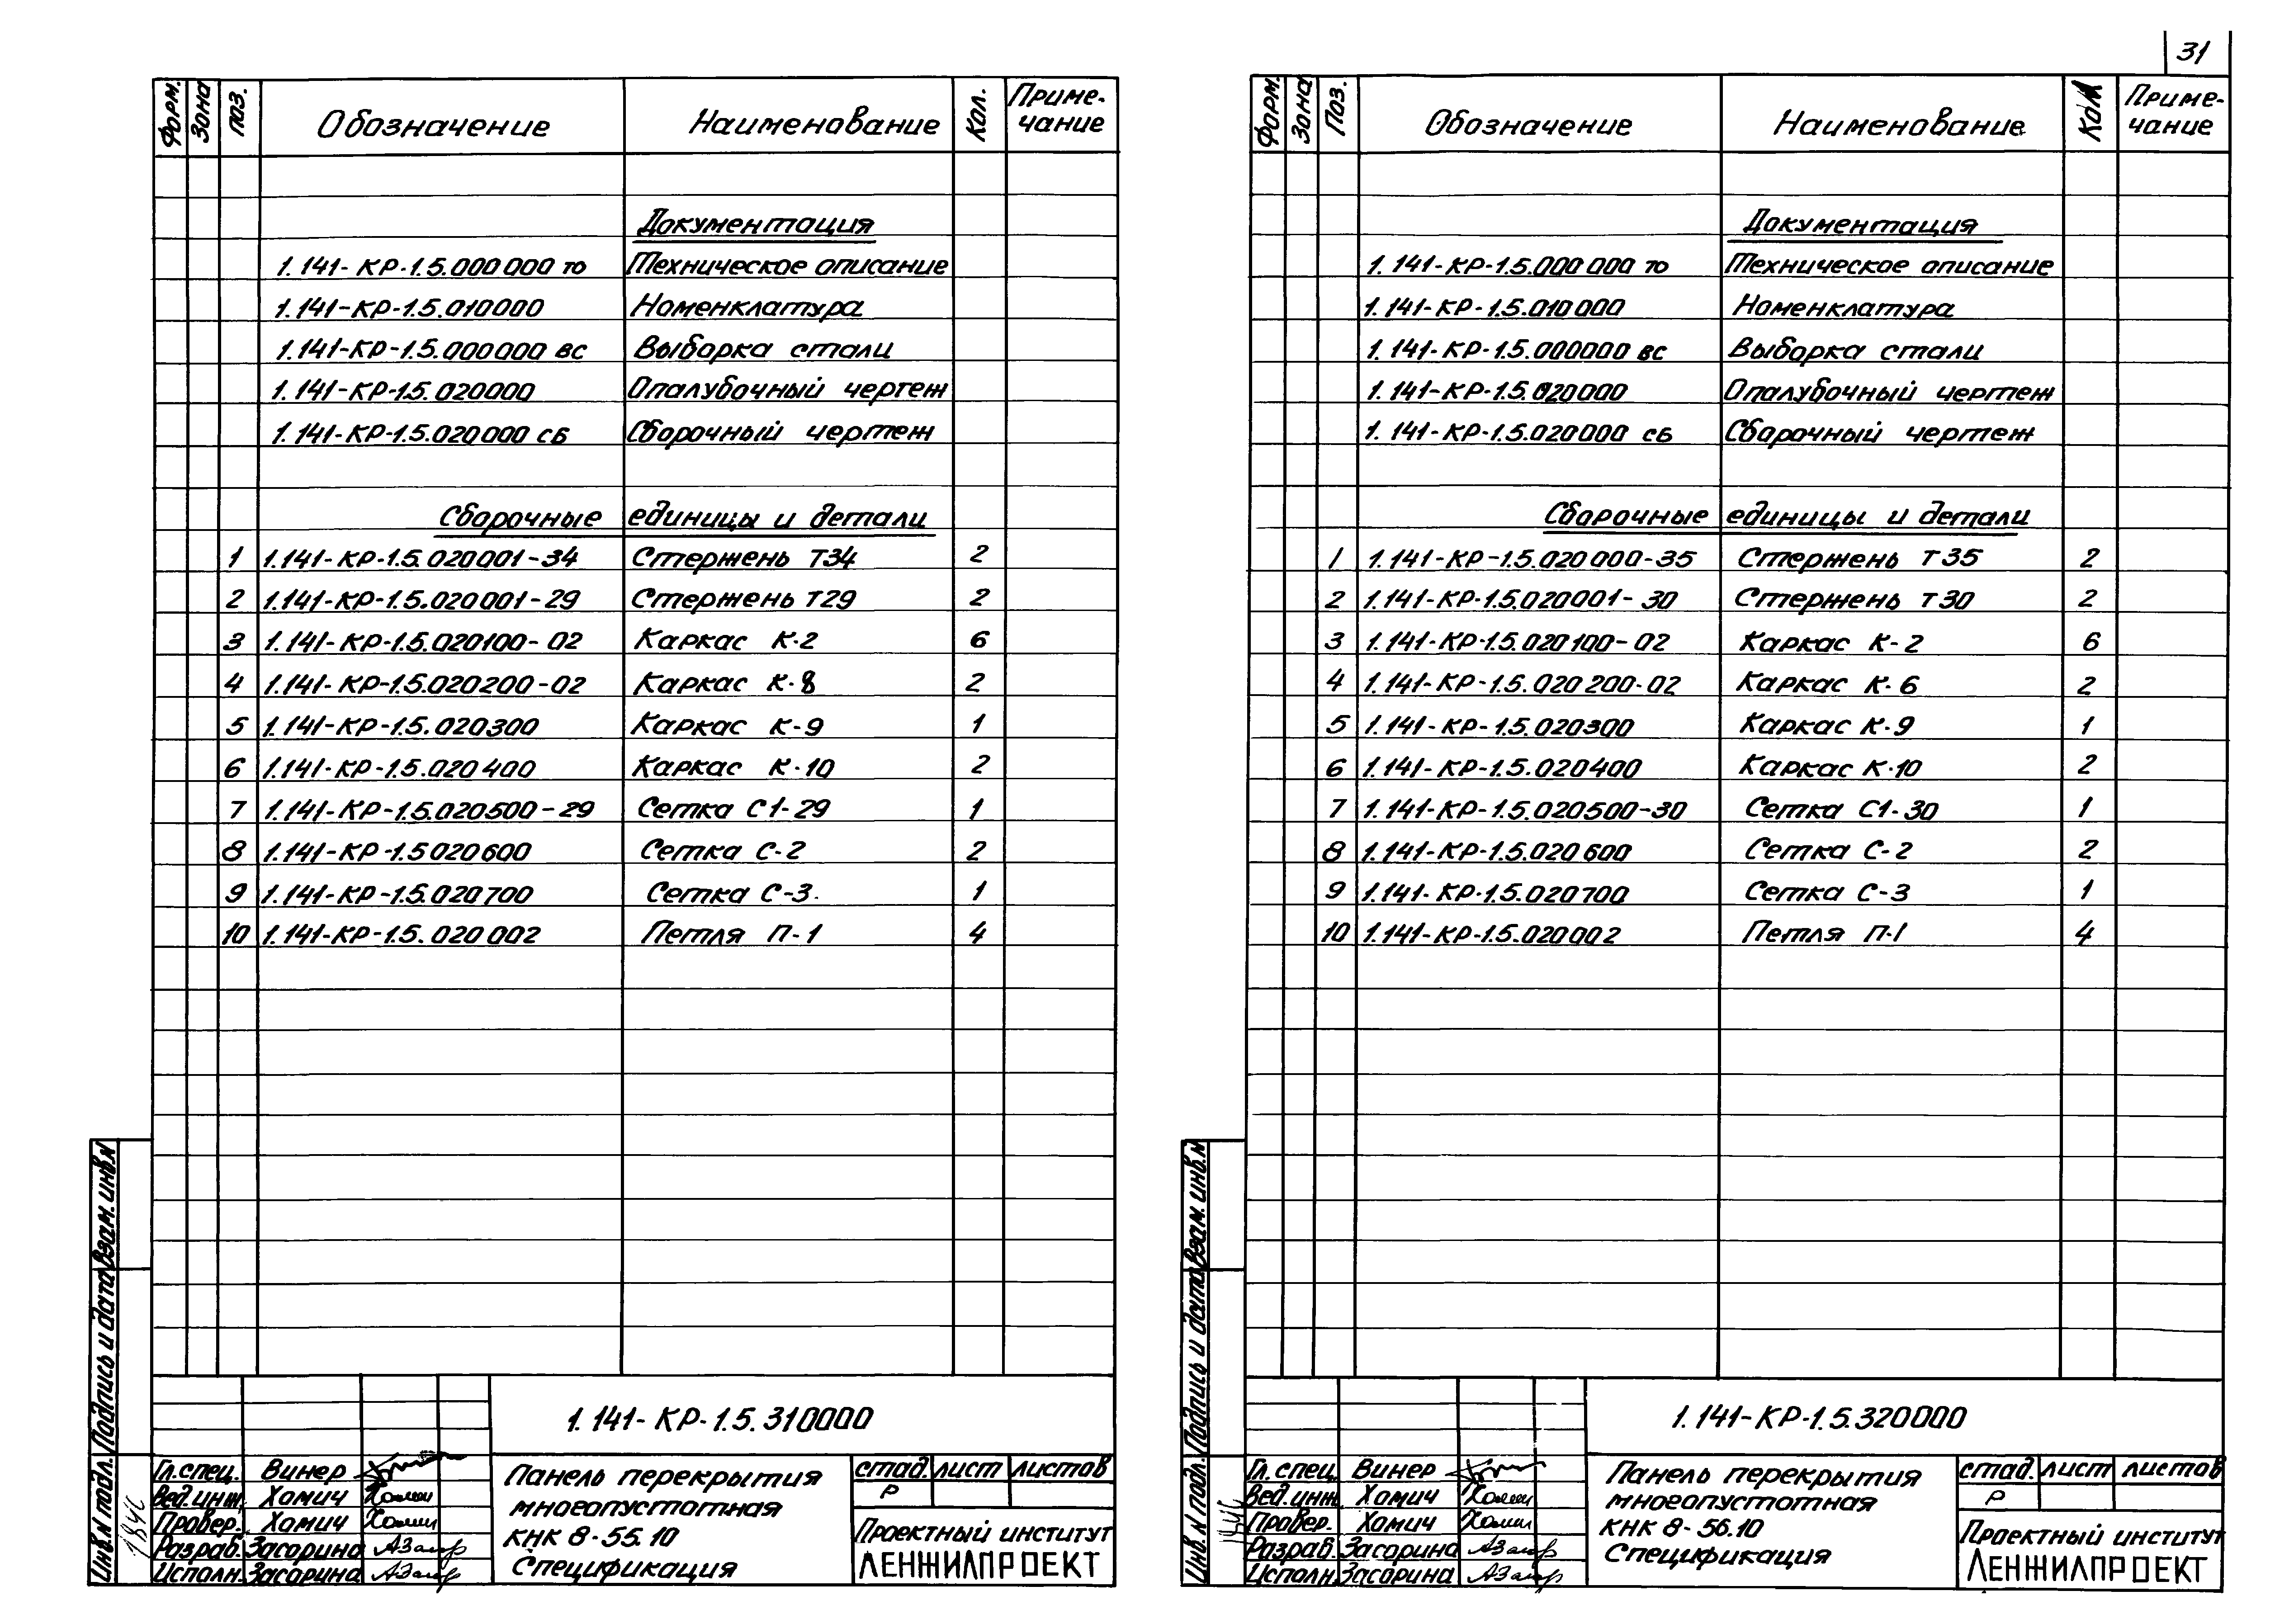 31
Форм. Зона Поз. Обозначение Наименование Кол. Приме-чание
Документация
1.141-КР-1.5.000000 ТО Техническое описание
1.141-КР-1.5.010000 Номенклатура
1.141-КР-1.5.000000 ВС Выборка стали
1.141-КР-1.5.020000 Опалубочный чертеж
1.141-КР-1.5.020000 СБ Сборочный чертеж
Сборочные единицы и детали
1 1.141-КР-1.5.020001-34 Стержень Т34 2
2 1.141-КР-1.5.020001-29 Стержень Т29 2
3 1.141-КР-1.5.020100-02 Каркас К-2 6
4 1.141-КР-1.5.020200-02 Каркас К-8 2
5 1.141-КР-1.5.020300 Каркас К-9 1
6 1.141-КР-1.5.020400 Каркас К-10 2
7 1.141-КР-1.5.020500-29 Сетка С1-29 1
8 1.141-КР-1.5020600 Сетка С-2 2
9 1.141-КР-1.5.020700 Сетка С-3. 1
10 1.141-КР-1.5.020002 Петля П-1 4
Инв.N подл. Подпись и дата Взам. инв.N
1.141-КР-1.5.310000
Гл.спец. Винер
Вед.инж. Хомич
Провер. Хомич
Разраб. Засорина
Исполн. Засорина
Панель перекрытия
многопустотная
КНК 8-55.10
Спецификация
стад. лист листов
Р
Проектный институт
ЛЕНЖИЛПРОЕКТ
Форм. Зона Поз. Обозначение Наименование Кол Приме-чание
Документация
1.141-КР-1.5.000000 ТО Техническое описание
1.141-КР-1.5.010000 Номенклатура
1.141-КР-1.5.000000 ВС Выборка стали
1.141-КР-1.5.020000 Опалубочный чертеж
1.141-КР-1.5.020000 СБ Сборочный чертеж
Сборочные единицы и детали
1 1.141-КР-1.5.020000-35 Стержень Т35 2
2 1.141-КР-1.5.020001-30 Стержень Т30 2
3 1.141-КР-1.5.020100-02 Каркас К-2 6
4 1.141-КР-1.5.020200-02 Каркас К-6 2
5 1.141-КР-1.5.020300 Каркас К-9 1
6 1.141-КР-1.5.020400 Каркас К-10 2
7 1.141-КР-1.5.020500-30 Сетка С1-30 1
8 1.141-КР-1.5.020600 Сетка С-2 2
9 1.141-КР-1.5.020700 Сетка С-3 1
10 1.141-КР-1.5.020002 Петля П-1 4
Инв.N подл. Подпись и дата Взам. инв.N
1.141-КР-1.5.320000
Гл.спец. Винер
Вед.инж. Хомич
Провер. Хомич
Разраб. Засорина
Исполн. Засорина
Панель перекрытия
многопустотная
КНК 8-56.10
Спецификация
стад. лист листов
Р
Проектный институт
ЛЕНЖИЛПРОЕКТ